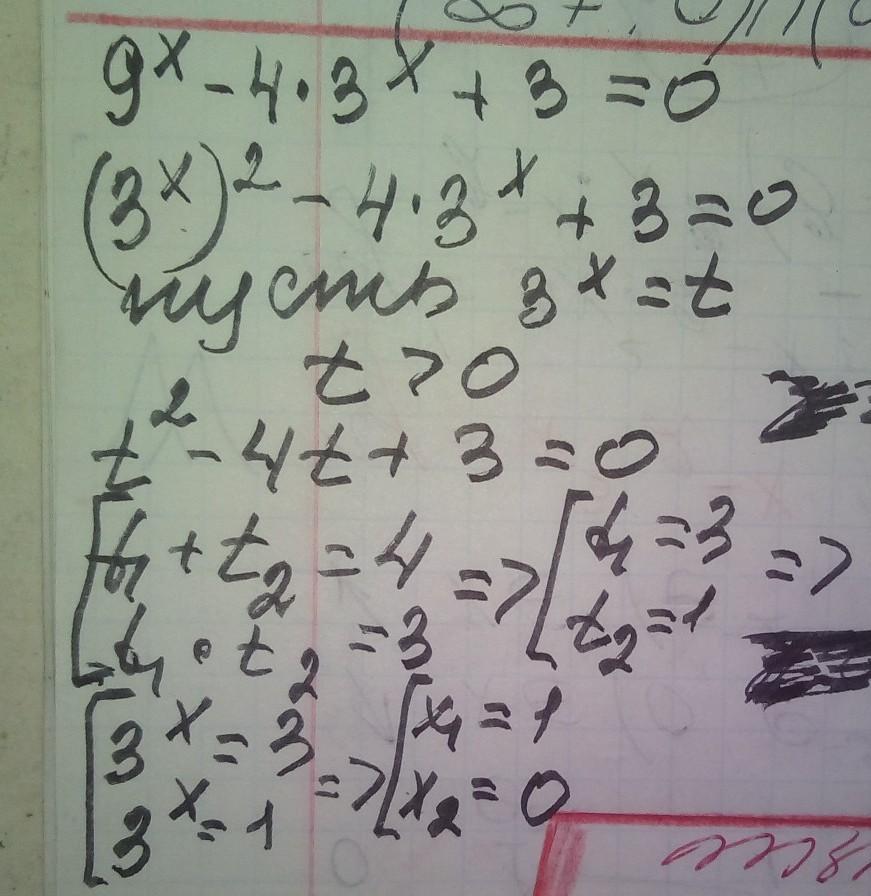 9^x - 4·3^x + 3 = 0
(3^x)^2 - 4·3^x + 3 = 0
пусть 3^x = t
t > 0
t^2 - 4t + 3 = 0
[t₁ + t₂ = 4 => [t₁ = 3 =>
t₁ · t₂ = 3 t₂ = 1
[3^x = 3 => [x₁ = 1
3^x = 1 x₂ = 0